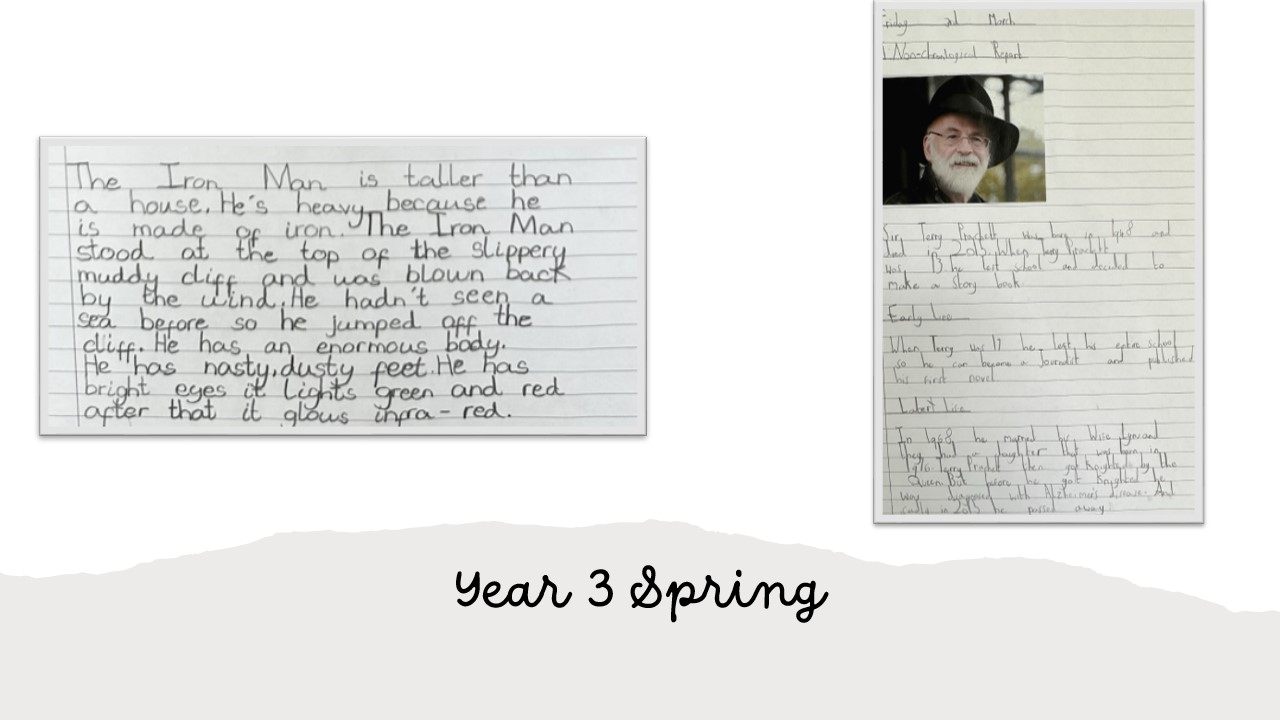 The Iron Man is taller than
a house. He's heavy because he
is made of iron. The Iron Man
stood at the top of the slippery
muddy cliff and was blown back
by the wind. He hadn't seen a
sea before so he jumped off the
cliff. He has an enormous body.
He has nasty, dusty feet. He has
bright eyes it lights green and red
after that it glows infra-red.
March
Non-chronological Report
Sir Terry was born in 1948 and
died in 2015. When
was he left school and decided to
make a story book
Early
When Terry was 17 he left his entire school
so he can became a Journalist and published
his first novel.
In 1968, he married his and
they had a daughter that was born in
1976. Terry then got Knighted by the
Queen. But before he got Knighted he
was diagnosed with Alzheimer's disease. And
in 2015 he passed away
Year 3 Spring